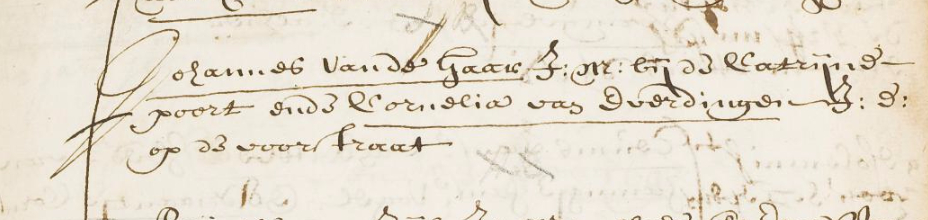 Johannes Vande Haar J: M: bij de Catrijne
poort ende Cornelia van Everdingen J: d:
op de voorstraat